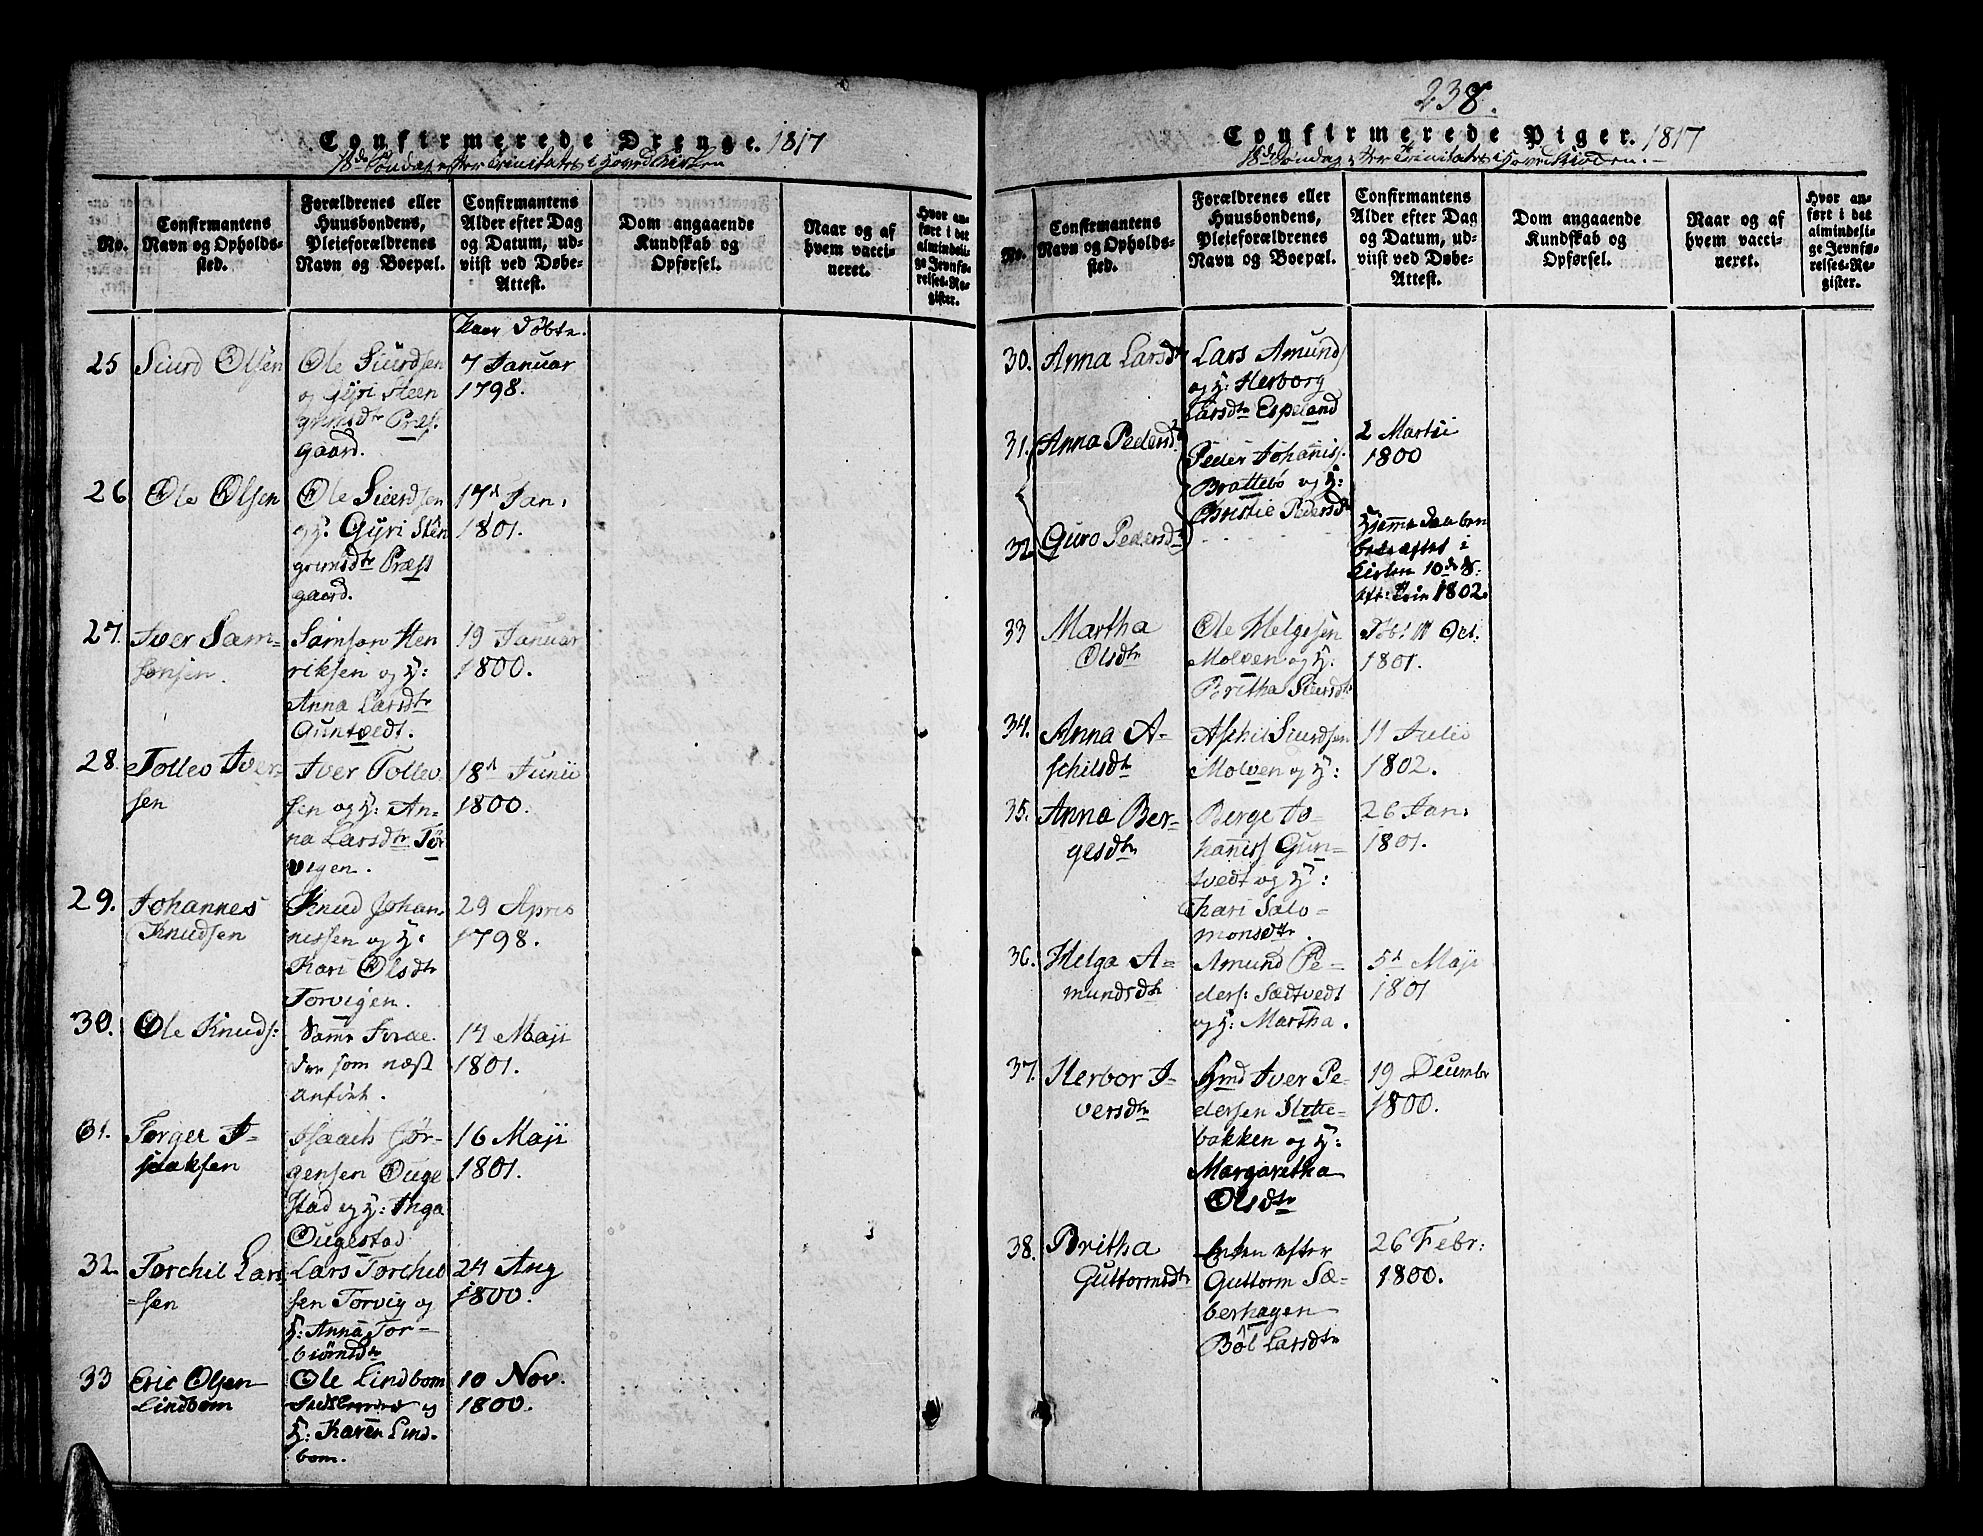 Confirmerede Drenge. 1817
18de Söndag efter Trinitatis i Hovedkirken
No.
Confirmantens
Navn og Opholds-
sted.
Forældrenes eller
Huusbondens,
Pleieforældrenes
Navn og Boepæl.
Confirmantens
Alder efter Dag
og Datum, ud-
viist ved Døbe-
Attest.
Dom angaaende
Kundskab og
Opførsel.
Naar og af
hvem vacci-
neret.
Hvor an-
ført i det
almindeli-
ge Jevnfø-
relses-Re-
gister.
Naar Döbte.
25 Siurd Olsen
Ole Siurdsen
og Gÿri Steen
grimsdtr Præst
gaard.
7 Januar
1798.
26 Ole Olsen
Ole Siurdsen
og H: Gÿri Sten
grimsdtr Præst
gaard.
17d Jan:
1801.
27. Iver Sam-
sonsen.
Samson Hen
riksen og H:
Anna Larsdtr
Guntvedt.
19 Januar
1800.
28. Tollev Iver-
sen
Iver Tollev
sen og H: An-
na Larsdtr Tor
vigen.
18d Junii
1800.
29. Johannes
Knudsen
Knud Johan-
nessen og H:
Kari Olsdtr
Torvigen.
29 April
1798.
30. Ole Knuds:
Samme Foræl
dre som næst
anført.
14 Maji
1801.
31. Torger I-
saaksen
Isaach Jör-
gensen Ouge
stad og H: Inga
Ougestad
16 Maji
1801.
32. Torchil Lar-
sen
Lars Torchil
sen Torvig og
H: Anna Tor-
biörnsdtr
24 Aug
1800.
33 Eric Olsen
Lindbom
Ole Lindbom
og
H: Karen Lind-
bom.
10 Nov.
1800.
238.
Confirmerede Piger. 1817
18de Söndag efter Trinitatis i Hovedkirken.
No.
Confirmantens
Navn og Opholds-
sted.
Forældrenes eller
Huusbondens,
Pleieforældrenes
Navn og Boepæl.
Confirmantens
Alder efter Dag
og Datum, ud-
viist ved Døbe-
Attest.
Dom angaaende
Kundskab og
Opførsel.
Naar og af
hvem vacci-
neret.
Hvor an-
ført i det
almindeli-
ge Jevnfø-
relses-Re-
gister.
30. Anna Larsdtr
Lars Amunds
og H: Herborg
Larsdtr Espeland
31. Anna Pedersdtr
Peder Johaniss.
Brattebö og H:
Christie Pedersdtr
2 Martii
1800
32. Guro Pedersdtr
Hjemme Daaben
bekræftet i
Kirken 10de S:
Aft: Trin 1802.
33 Martha
Olsdtr
Ole Helgesen
Molven og H:
Britha Siursdtr
Döbt 11 Oct:
1801.
34. Anna A-
schilsdtr
Aschil Siurdsen
Molven og H:
11 Julii
1802.
35. Anna Ber-
gesdtr
Berge Jo-
haniss Gun-
tvedt og H:
Kari Salo-
monsdtr.
26 Jan:
1801.
36. Helga A-
mundsdtr
Amund Pe-
ders: Sædtvedt
og H: Martha.
5d Maji
1801
37. Herbor I-
versdtr
Hmd Iver Pe-
dersen Slette-
bakken og H:
Margaretha
Olsdtr
19 Decembr
1800.
38. Britha
Guttormsdtr
Enken efter
Guttorm Sæ-
berhagen
Böl Larsdtr
26 Febr:
1800.